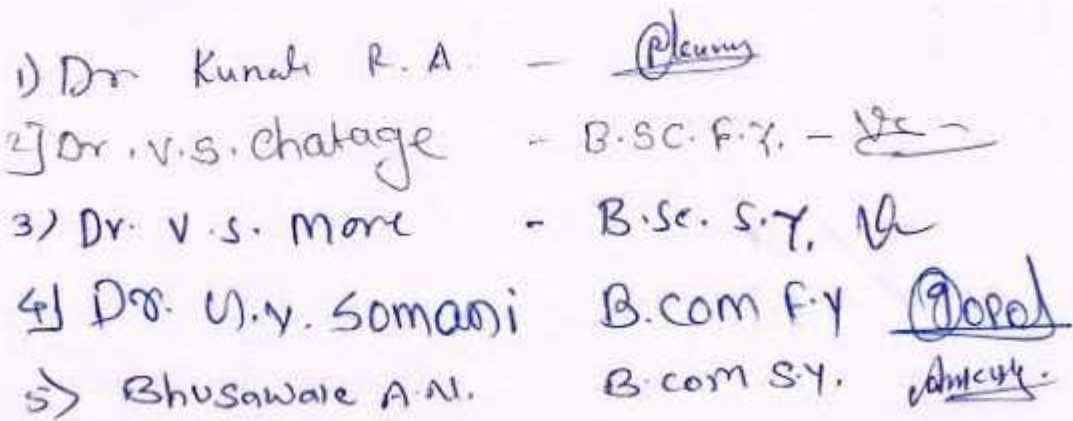 1) Dr Kunale R. A. -
2] Dr. V.S. Chatage - B.SC. F.Y. -
3) Dr. V.S. More - B.Sc. S.Y.
4] Dr. G.Y. Somani B.COM F.Y Gopal
5) Bhusaware A.N. B.com S.Y.